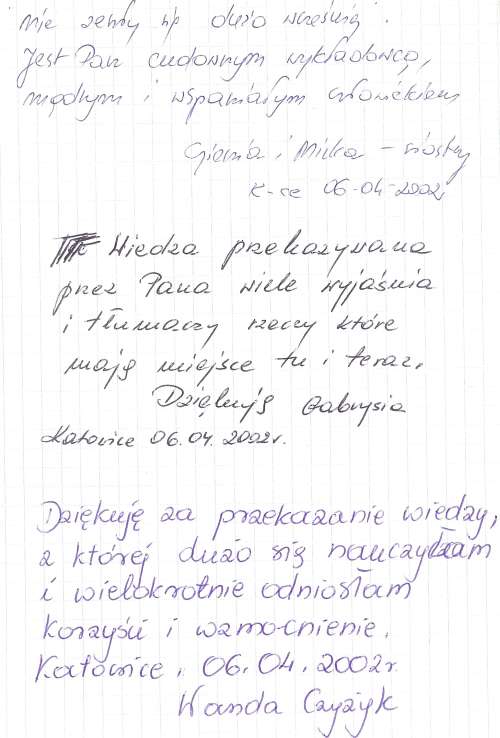 Jest Pan cudownym wykładowcą,
mądrym i wspaniałym człowiekiem
i Mirka – siostry
K-ce 06-04-2002
Wiedza przekazywana
przez Pana wiele wyjaśnia
i tłumaczy rzeczy które
mają miejsce tu i teraz.
Dziękuję Gabrysia
Katowice 06.04.2002r.
Dziękuję za przekazanie wiedzy,
z której dużo się nauczyłam
i wielokrotnie odniosłam
korzyści i wzmocnienie.
Katowice, 06.04.2002r.
Wanda Czyżyk